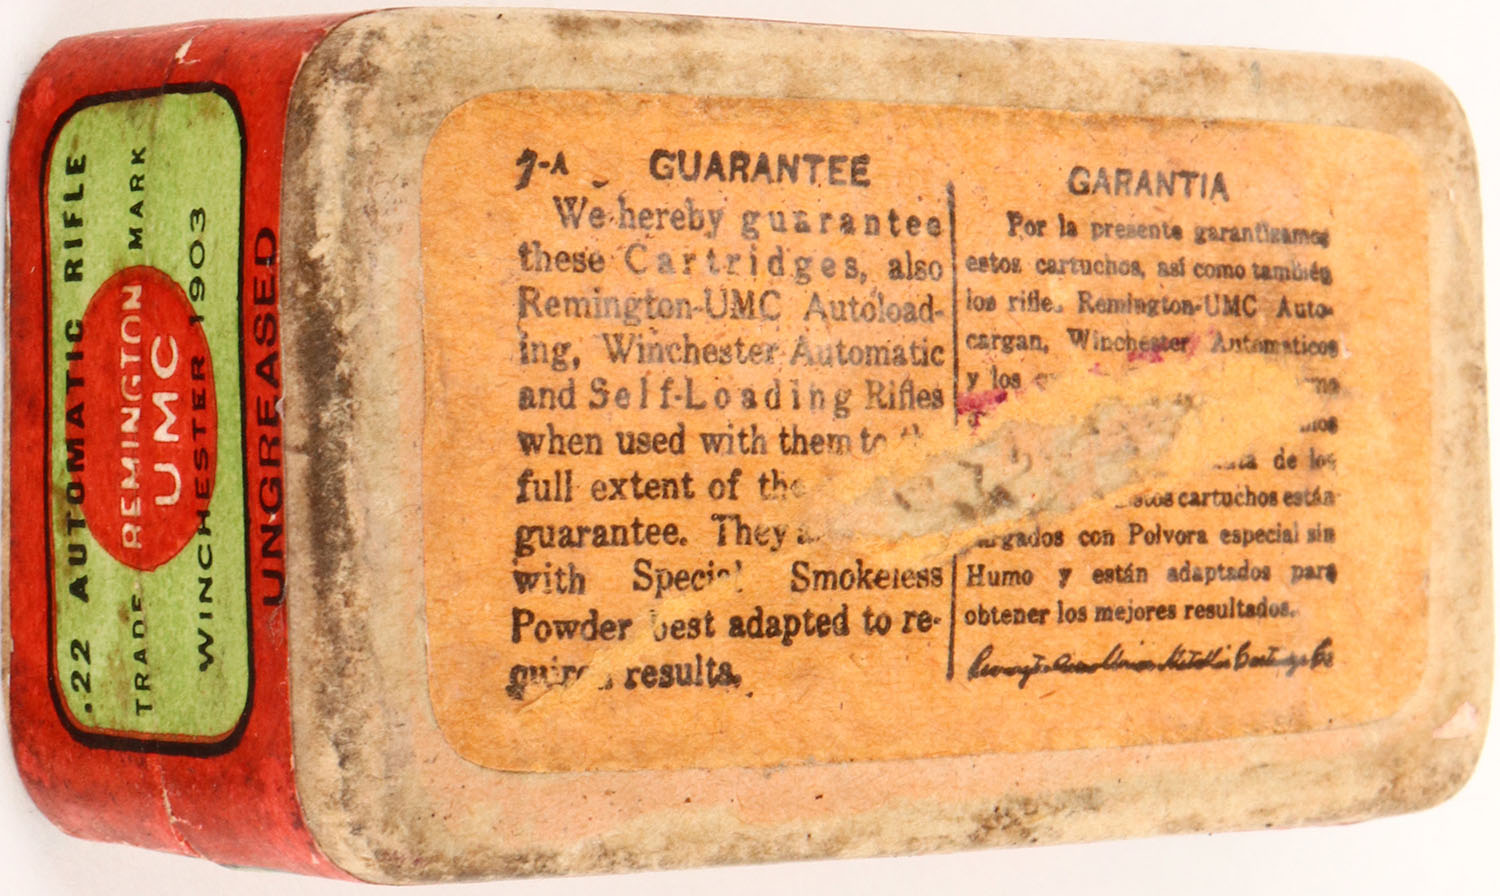 .22 AUTOMATIC RIFLE
TRADE MARK
REMINGTON
UMC
WINCHESTER 1903
UNGREASED
7-A GUARANTEE
We hereby guarantee
these Cartridges, also
Remington-UMC Autoload-
ing, Winchester Automatic
and Self-Loading Rifles
when used with them to
full extent of the
guarantee. They
with Special Smokeless
Powder best adapted to re-
results.
GARANTIA
Por la presente garantizamos
estos cartuchos, así como también
los rifle. Remington-UMC Auto-
cargan, Winchester Automaticos
y los
de los
cartuchos están
con Polvora especial sin
Humo y están adaptados para
obtener los mejores resultados.